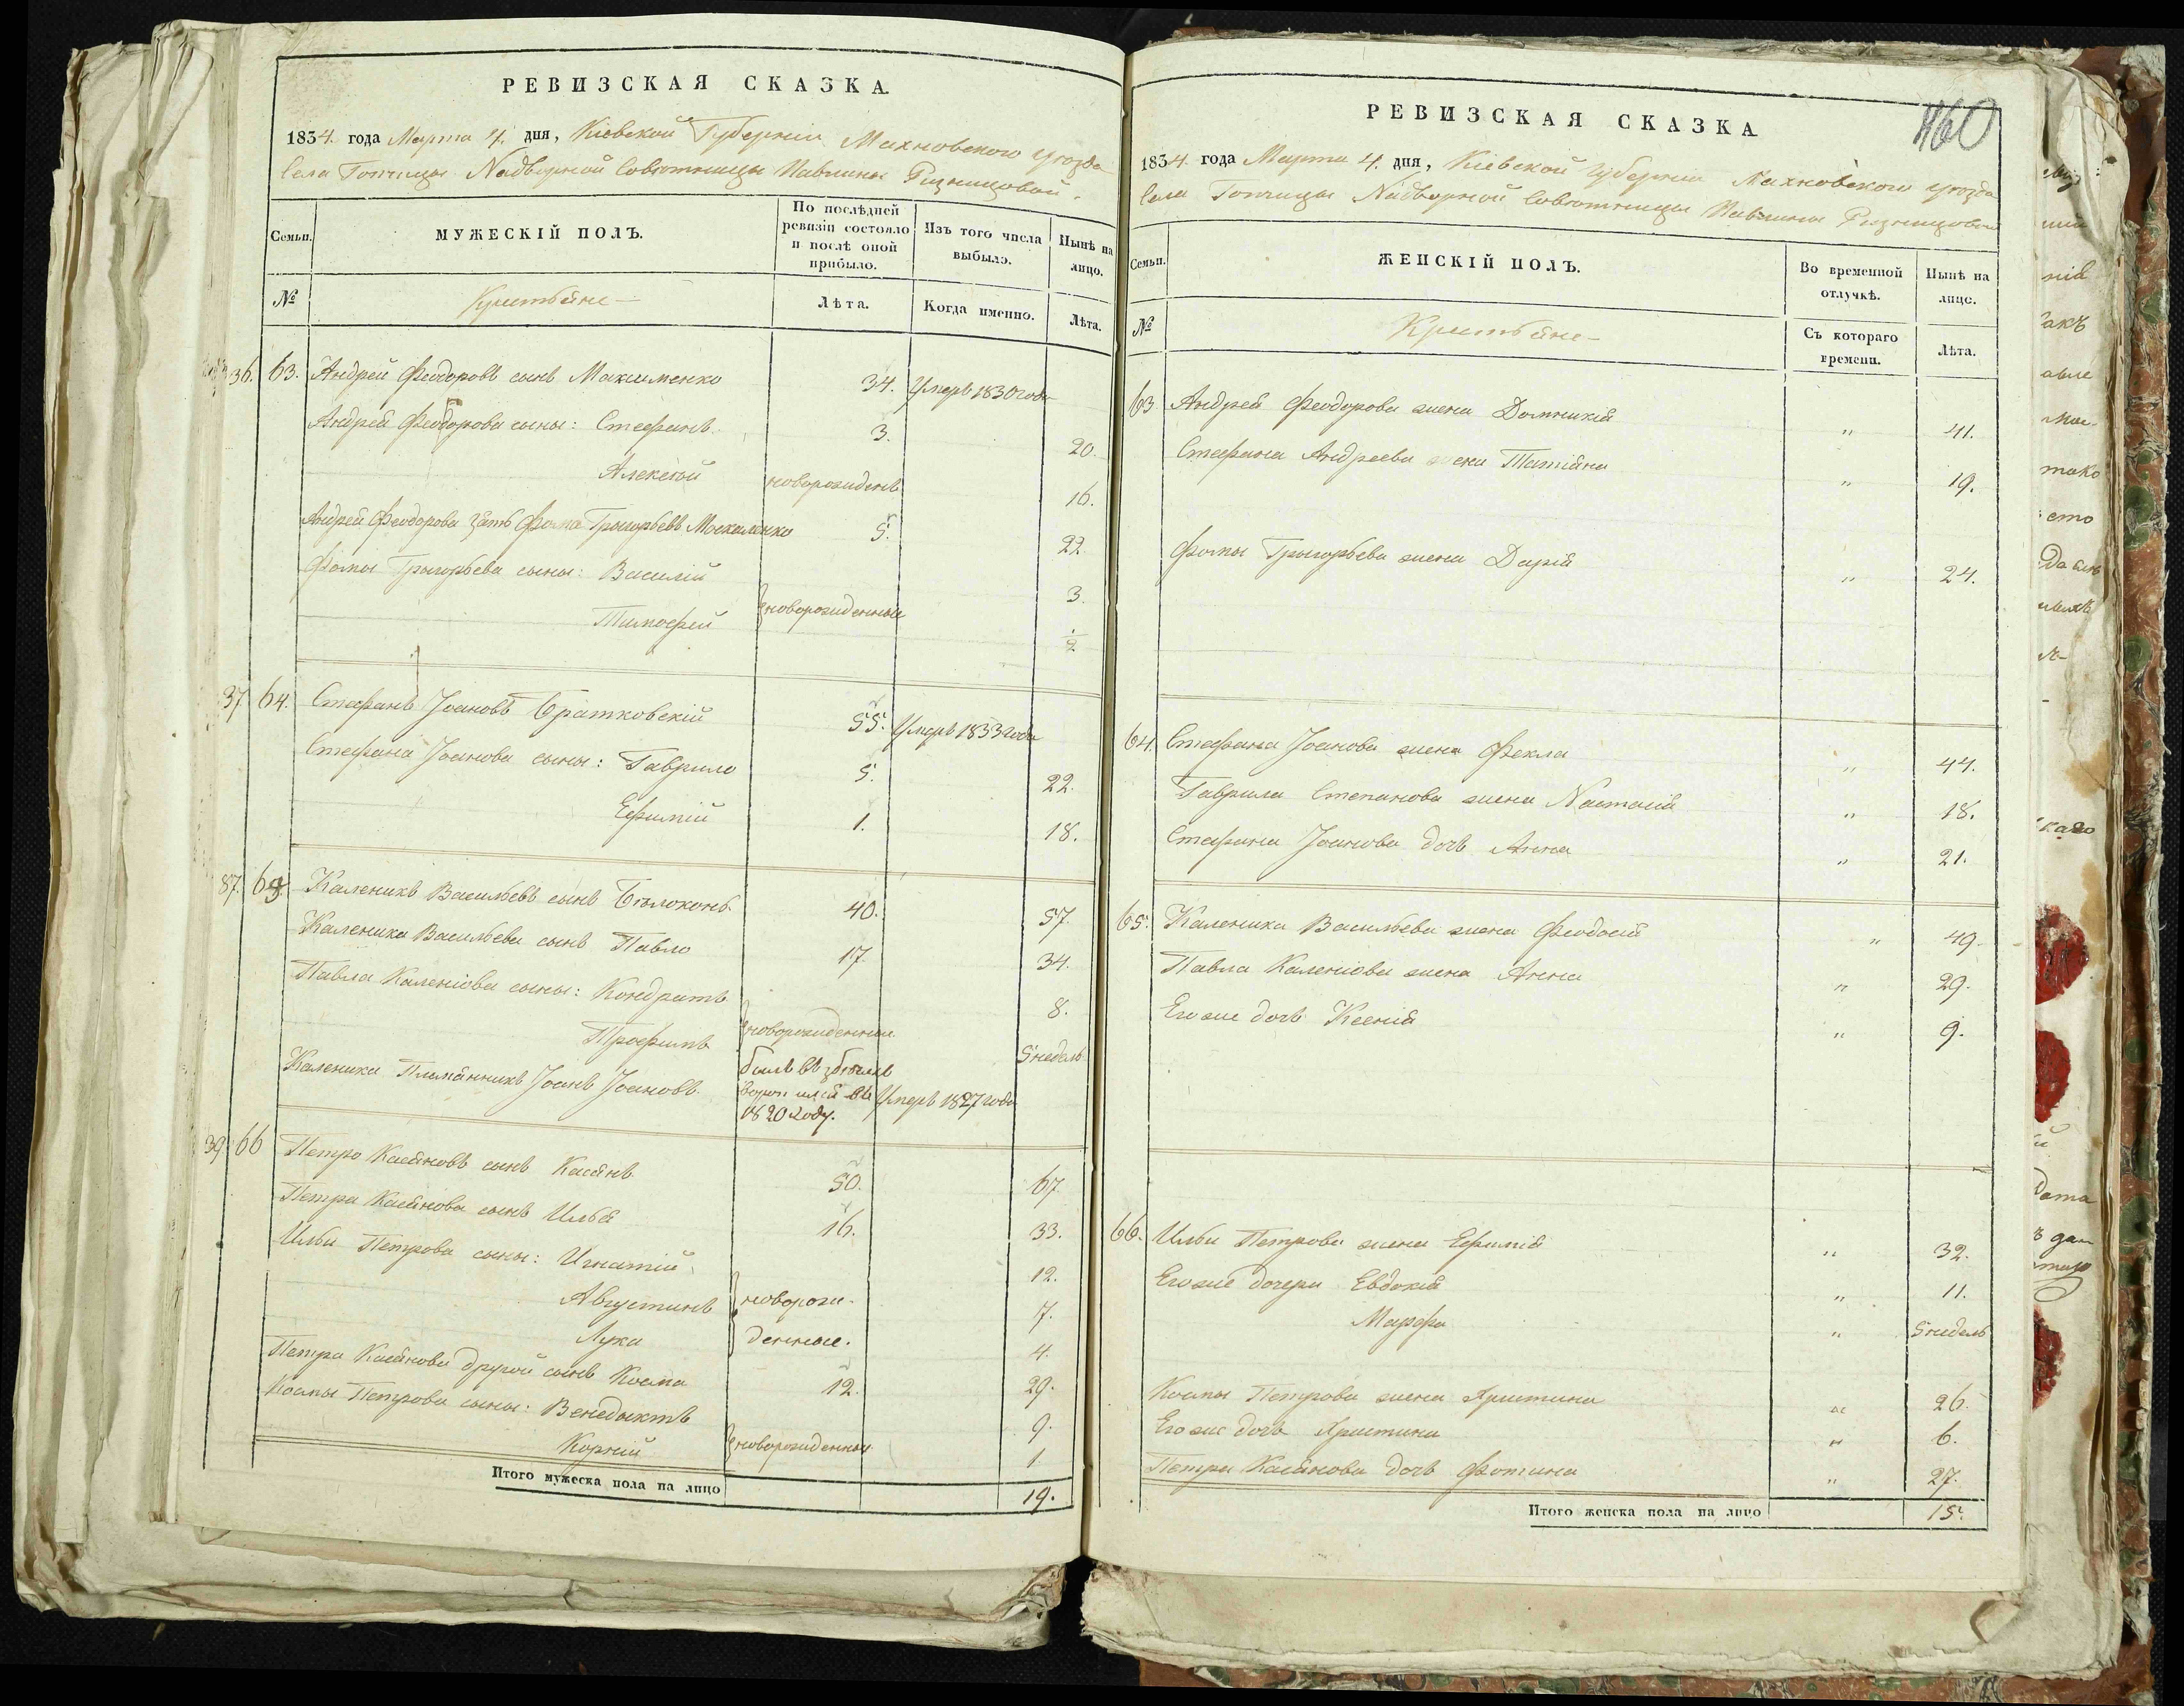 РЕВИЗСКАЯ СКАЗКА
1834. года Марта 4. дня, Кіевской Губерніи Махновского уѣзда
Села Топчицы Надворной Совѣтницы Павлины Ризницовой.
Семьи.
МУЖЕСКІЙ ПОЛЪ.
По послѣдней ревизіи состояло и послѣ оной прибыло.
Изъ того числа выбыло.
Нынѣ на лицо.
№
Крестьяне
Лѣта.
Когда именно.
Лѣта.
36. 63. Андрей Феодоровъ сынъ Максименко 34. Умеръ 1830 года
Андрея Феодорова сыны: Стефанъ 3. 20.
Алексѣй новорожденъ 16.
Андрея Феодорова зять Фома Григорьевъ Москаленко 5. 22
Фомы Григорьева сыны: Василій 3.
Тимофей новорожденные ½
37 64. Стефанъ Іоановъ Братковскій 55. Умеръ 1833 года
Стефана Іоанова сыны: Гаврило 5. 22.
Ефимій 1. 18.
87. 65. Каленикъ Васильевъ сынъ Бѣлоконь 40. 57.
Каленика Васильева сынъ Павло 17 34.
Павла Каленіова сыны: Кондратъ 8.
Трофимъ новорожденные 5 недѣль
Каленика Племянникъ Іоанъ Іоановъ былъ въ 1820 году. Умеръ 1827 года
39. 66 Петро Касяновъ сынъ Касянъ 50. 67.
Петра Касянова сынъ Илья 16. 33.
Ильи Петрова сыны: Игнатій 12.
Августинъ новорож- 7.
Лука денные. 4.
Петра Касянова другой сынъ Косма 12. 29.
Космы Петрова сыны: Венедыктъ 9.
Корній новорожденные 1
Итого мужеска пола на лицо 19.
460
РЕВИЗСКАЯ СКАЗКА
1834. года Марта 4. дня, Кіевской Губерніи Махновского уѣзда
Села Топчицы Надворной Совѣтницы Павлины Ризницовой
Семьи.
ЖЕНСКІЙ ПОЛЪ.
Во временной отлучкѣ.
Нынѣ на лицо.
№
Крестьяне
Съ котораго времени.
Лѣта.
63 Андрея Феодорова жена Домникія " 41.
Стефана Андреева жена Татіяна " 19.
Фомы Григорьева жена Дарія " 24.
64. Стефана Іоанова жена Фекла " 44.
Гаврила Степанова жена Настасія " 18.
Стефана Іоанова дочь Анна " 21.
65. Каленика Васильева жена Феодосія " 49.
Павла Каленіова жена Анна " 29.
Его же дочь Ксенія " 9.
66. Ильи Петрова жена Ефимія " 32.
Его же дочери Евдокія " 11.
Марфа " 5 недѣль
Космы Петрова жена Христина " 26.
Его же дочь Христина " 6.
Петра Касянова дочь Фотина " 27.
Итого женска пола на лицо 15.